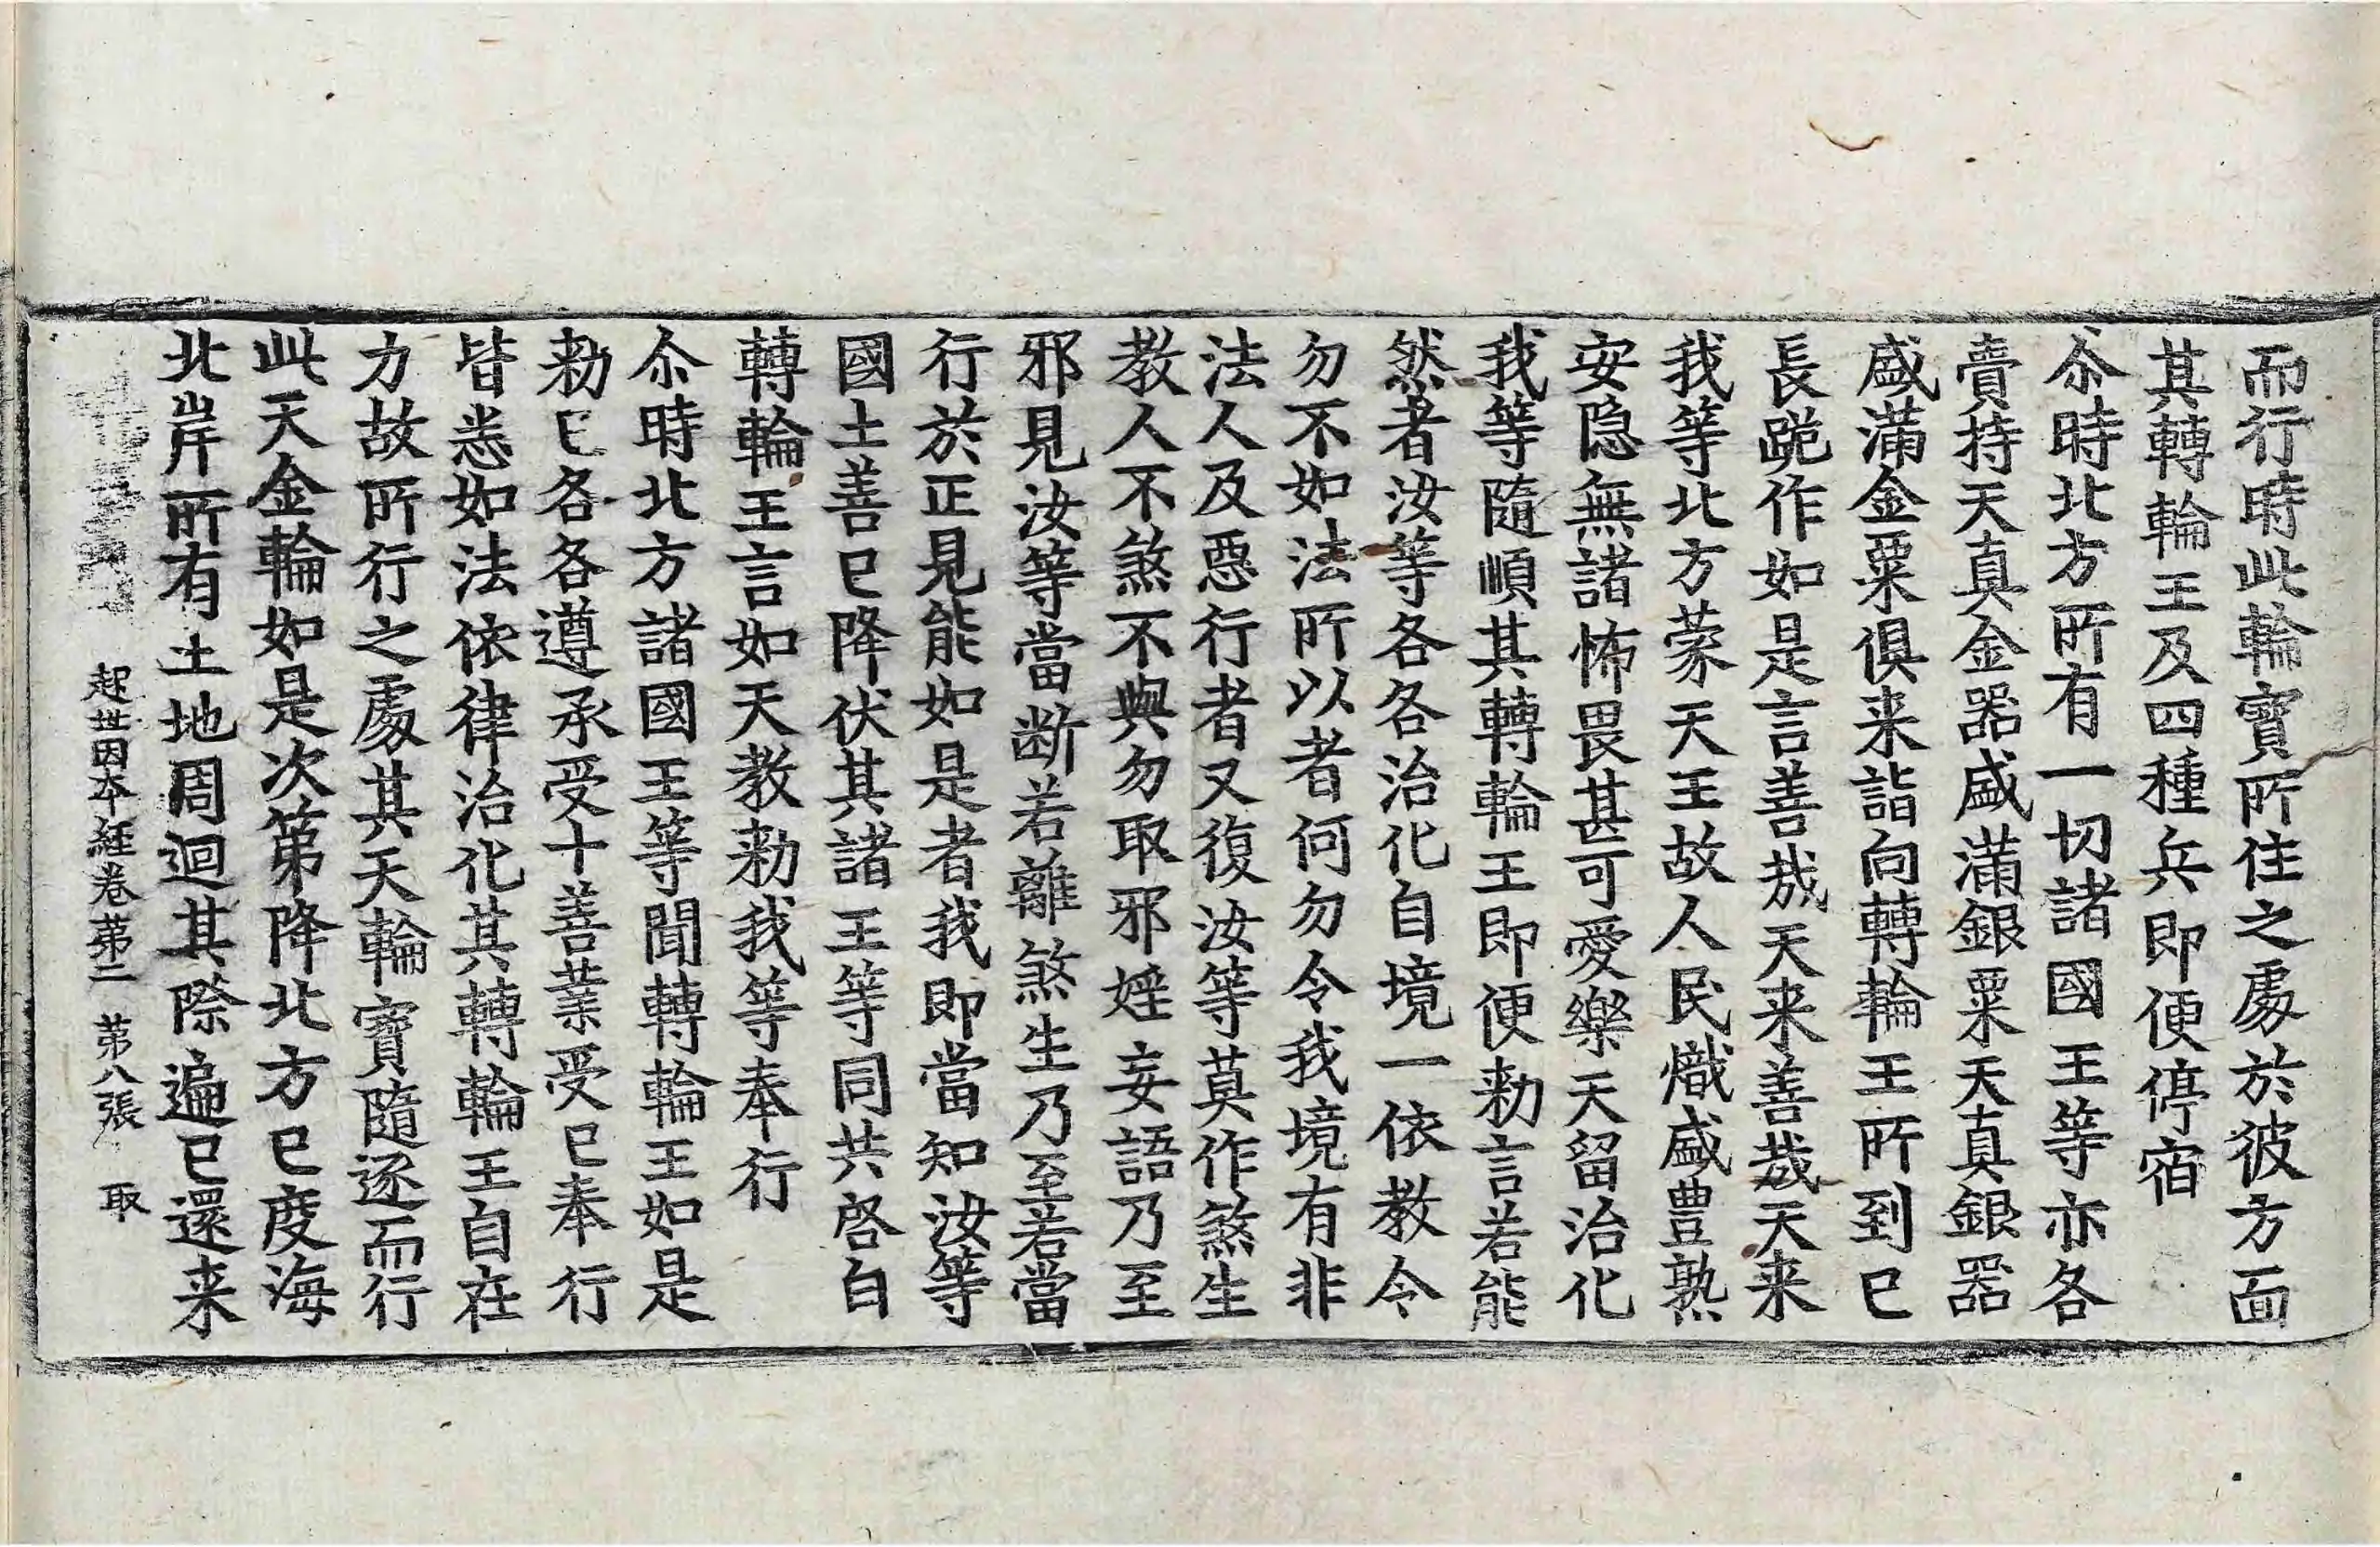 而行時此輪寶所住之處於彼方面
其轉輪王及四種兵即便停宿
尒時北方所有一切諸國王等亦各
賷持天真金器盛滿銀粟天真銀器
盛滿金粟俱来詣向轉輪王所到已
長跪作如是言善哉天来善哉天来
我等北方蒙天王故人民熾盛豊熟
安隐無諸怖畏甚可愛樂天留治化
我等隨順其轉輪王即便勑言若能
然者汝等各各治化自境一依教令
勿不如法所以者何勿令我境有非
法人及惡行者又復汝等莫作煞生
教人不煞不與勿取邪婬妄語乃至
邪見汝等當断若離煞生乃至若當
行於正見能如是者我即當知汝等
國土善已降伏其諸王等同共啓白
轉輪王言如天教勑我等奉行
尒時北方諸國王等聞轉輪王如是
勑已各各遵承受十善業受已奉行
皆悉如法依律治化其轉輪王自在
力故所行之處其天輪寶隨逐而行
此天金輪如是次第降北方已度海
北岸所有土地周迴其際遍已還来
起世因本經卷苐二 苐八張 取